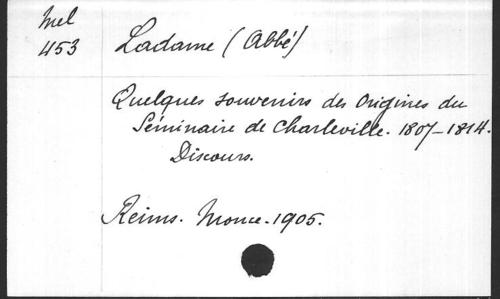 Mel
453
Ladame (Abbé)
Quelques souvenirs des Origines du
Séminaire de Charleville. 1807-1814.
Discours.
Reims. Monce. 1905.